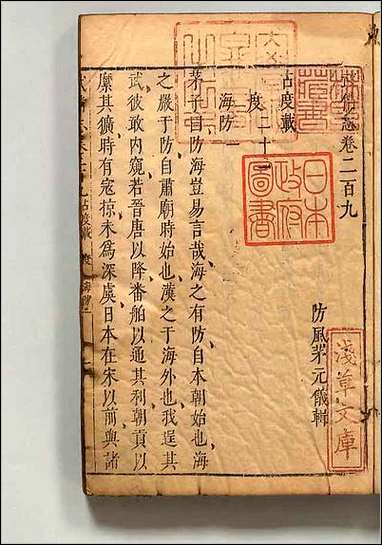 武備志卷二百九
防風茅元儀輯
占度載
度二十一
海防一
茅子曰防海豈易言哉海之有防自本朝始也海
之嚴于防自肅廟時始也漢之于海外也我逞其
武彼敢内窺若晉唐以降番舶以通其利朝貢以
縻其獷時有寇掠未爲深虞日本在宋以前與諸
日本
政府
圖書
淺草文庫